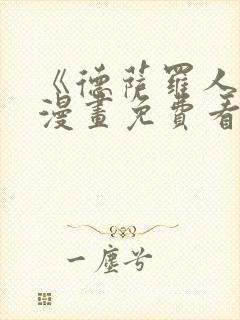 《德萨羅人
漫畫免費看
一塵兮